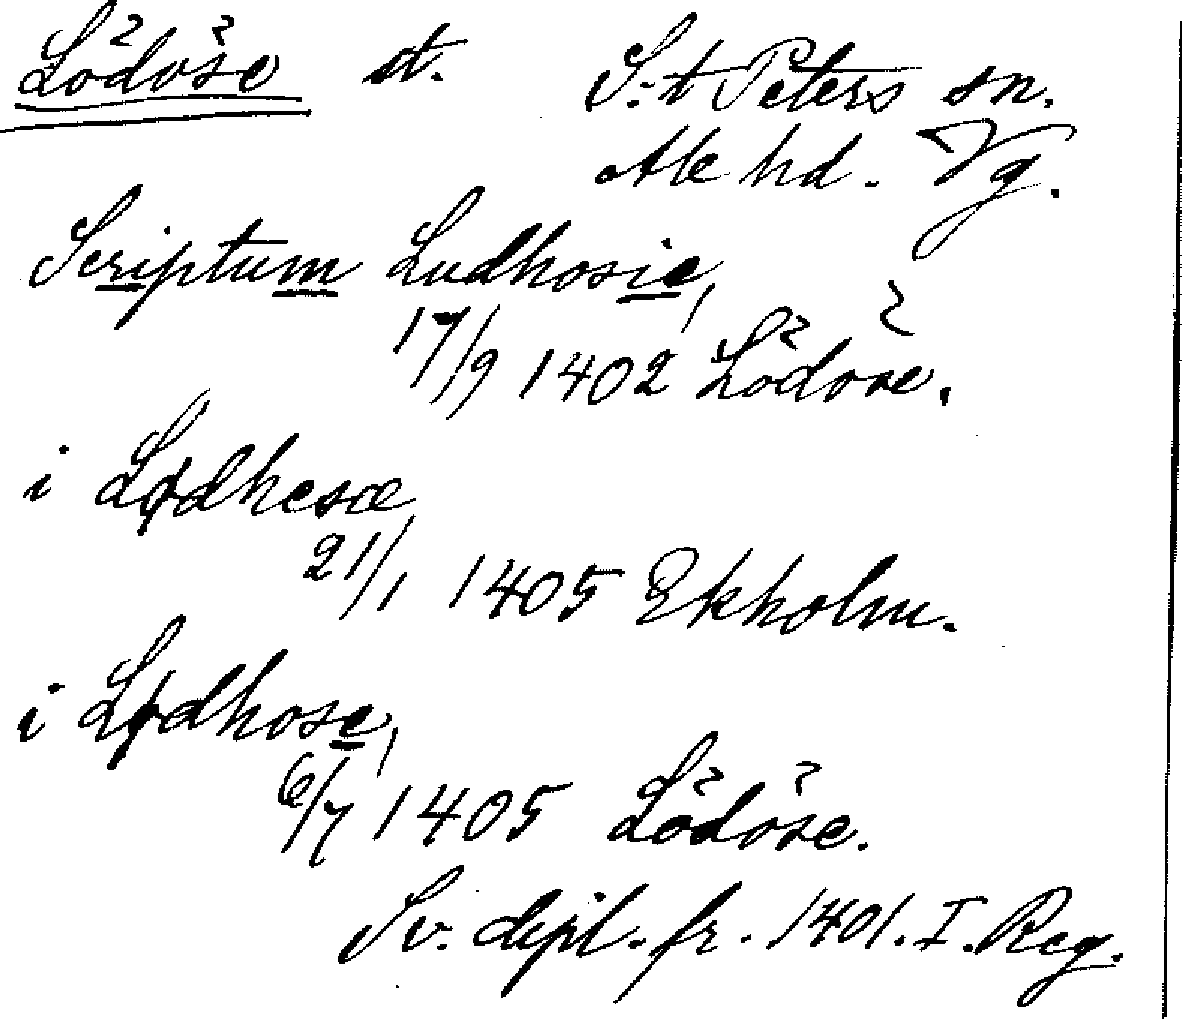 Lödöse st. S:t Peters sn.
Ale hd. Vg.
Scriptum Ludhosie,
17/9 1402 Lödöse.
i Lødhesæ,
21/1 1405 Ekholm.
i Lødhose,
6/7 1405 Lödöse.
Sv. dipl. fr. 1401. I. Reg.